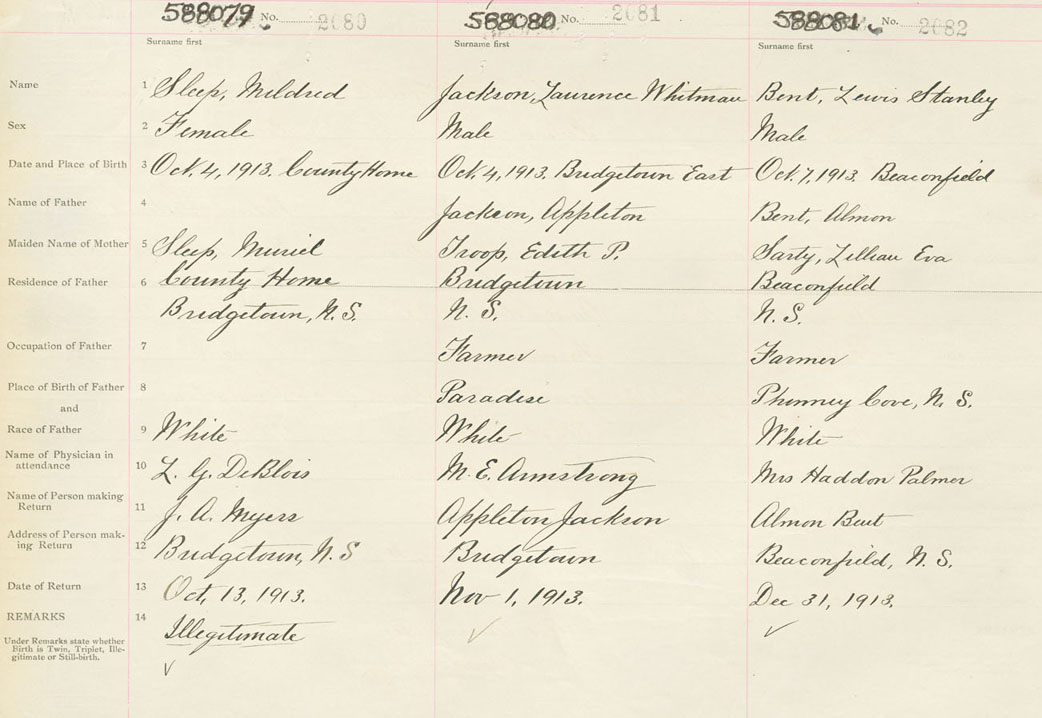 588079 No. 2080 588080 No. 2081 588081 No. 2082
Surname first Surname first Surname first
Name 1 Sleep, Mildred Jackson, Laurence Whitman Bent, Lewis Stanley
Sex 2 Female Male Male
Date and Place of Birth 3 Oct. 4, 1913. County Home Oct. 4, 1913. Bridgetown East Oct. 7, 1913. Beaconfield
Name of Father 4 Jackson, Appleton Bent, Almon
Maiden Name of Mother 5 Sleep, Muriel Troop, Edith P. Sarty, Lillian Eva
Residence of Father 6 County Home Bridgetown Beaconfield
Bridgetown, N.S. N.S. N.S.
Occupation of Father 7 Farmer Farmer
Place of Birth of Father 8 Paradise Phinney Cove, N.S.
and
Race of Father 9 White White White
Name of Physician in
attendance 10 L. G. DeBlois M. E. Armstrong Mrs Haddon Palmer
Name of Person making
Return 11 J. A. Myers Appleton Jackson Almon Bent
Address of Person mak-
ing Return 12 Bridgetown, N.S Bridgetown Beaconfield, N.S.
Date of Return 13 Oct, 13, 1913. Nov 1, 1913. Dec 31, 1913.
REMARKS 14 Illegitimate
Under Remarks state whether
Birth is Twin, Triplet, Ille-
gitimate or Still-birth.